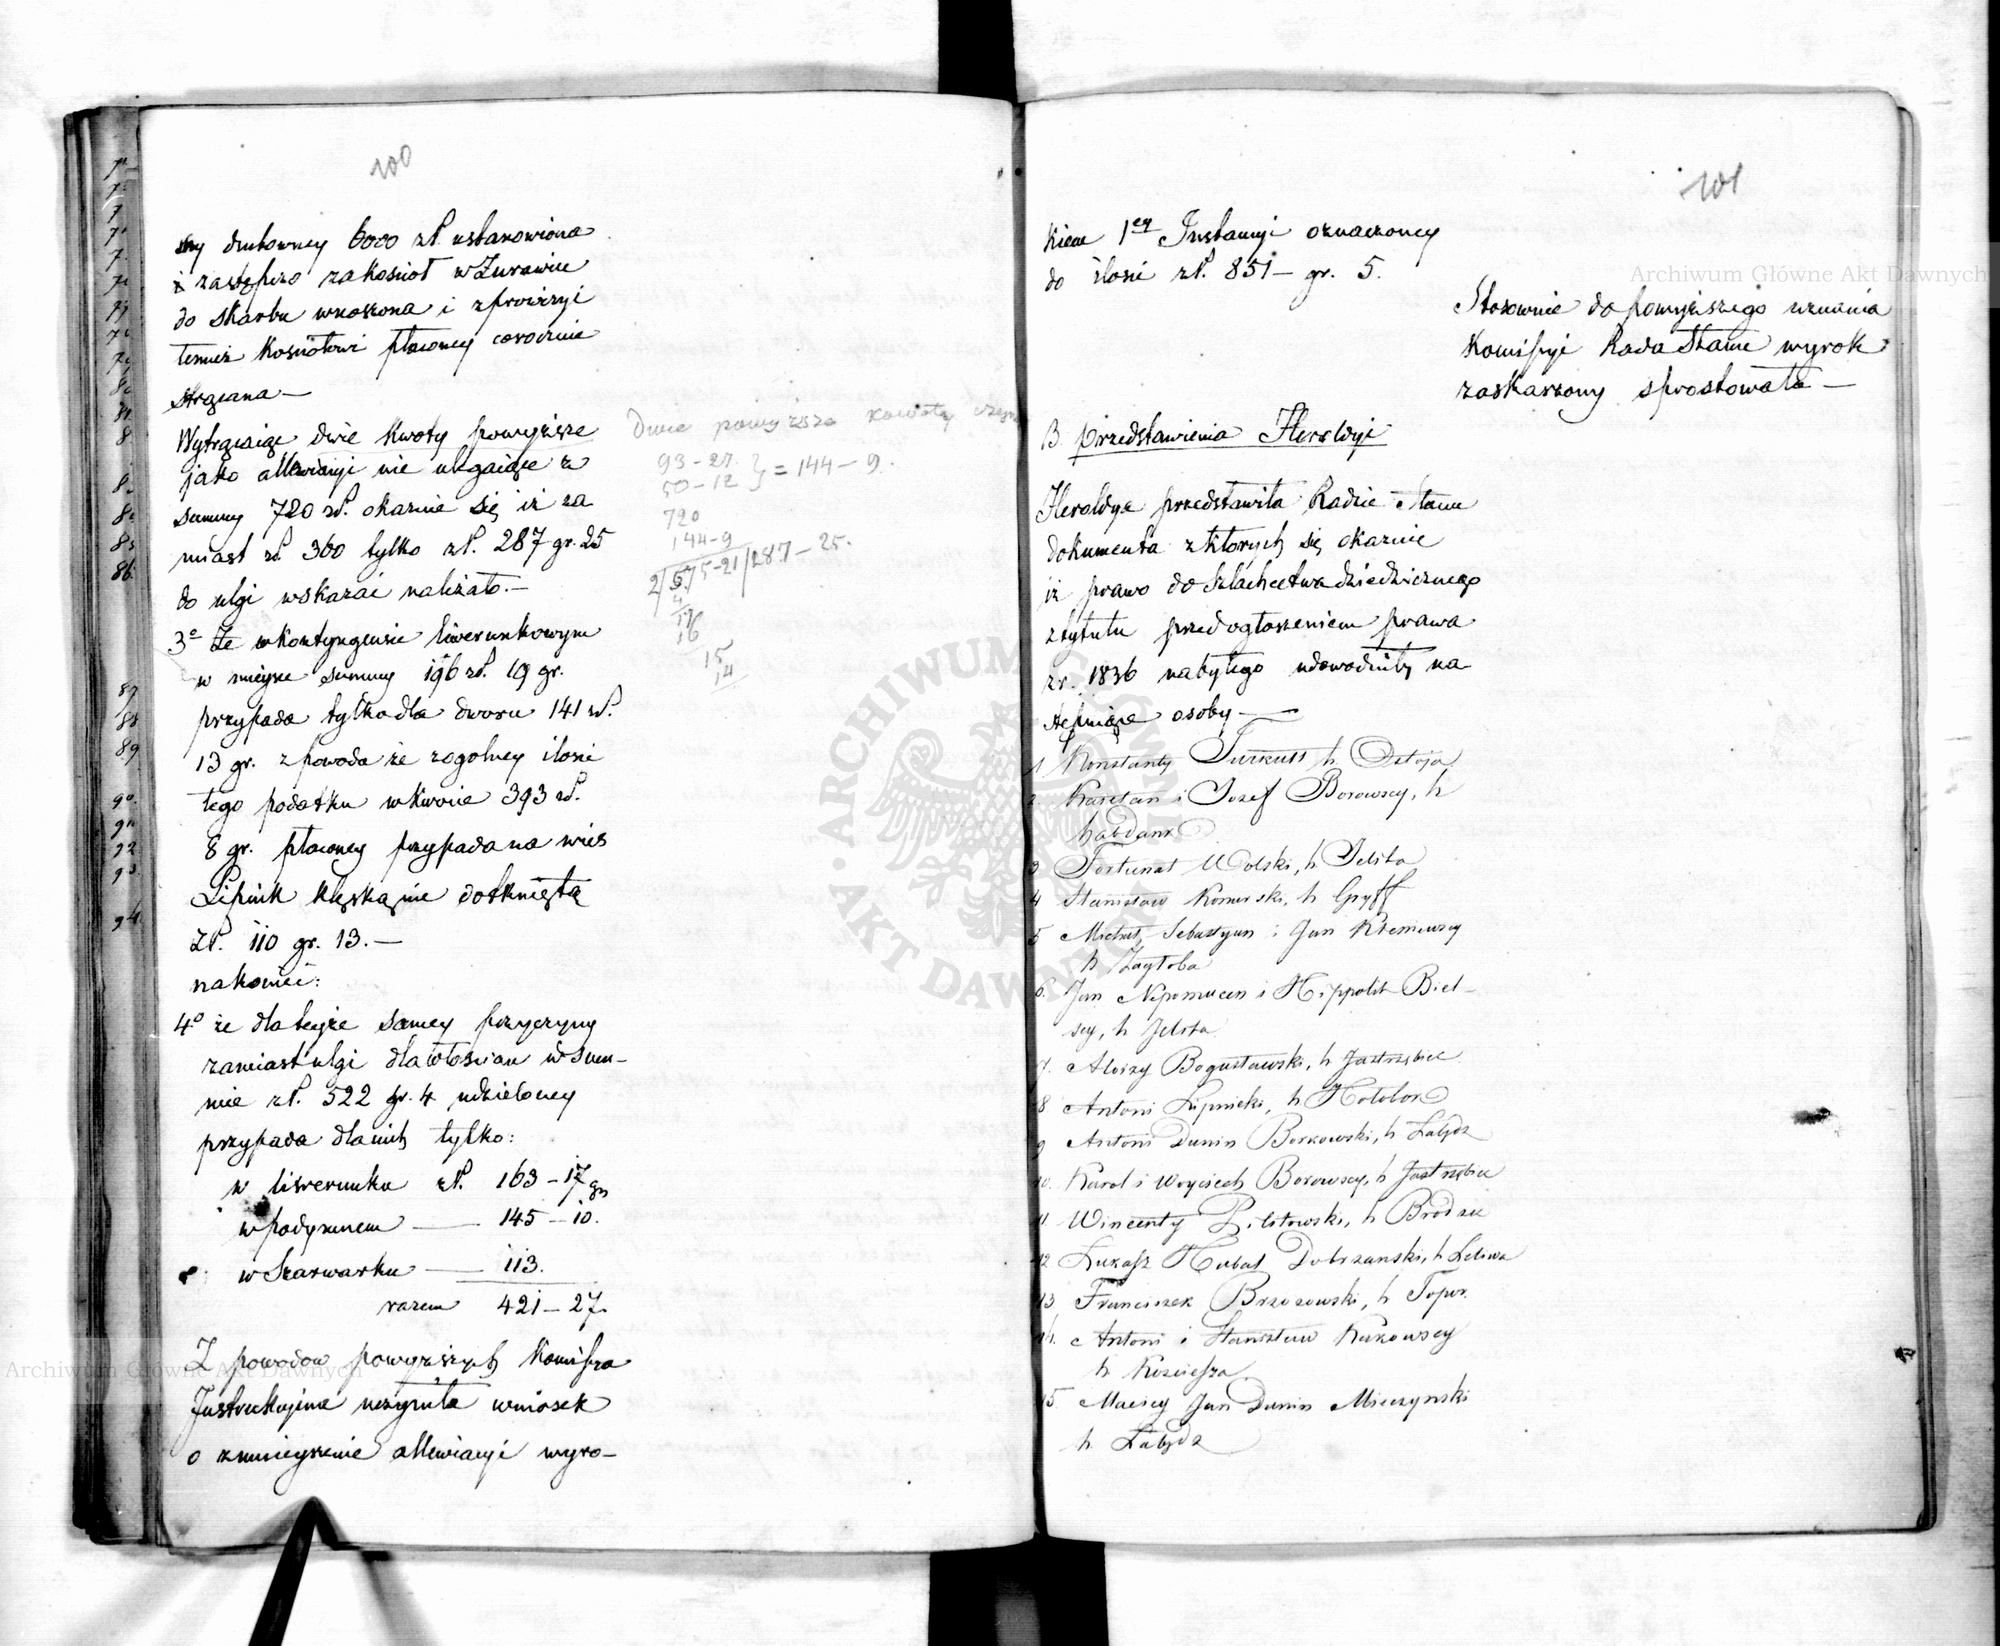 100
my drukowney 6000 zł. ustanowiona
i zastępczo za kościoł w Żurawiu
do skarbu wnoszona i z prowizyi
temuż kościołowi płaconey corocznie
strącana —
Wytrącając dwie kwoty powyższe
jako allewiacyi nie ulegaiące z
summy 720 zł. okazuie się iż za
miast zł. 360 tylko zł. 287 gr. 25
do ulgi wskazać należało. —
3º Że w kontyngensie liwerunkowym
w mieysce summy 196 zł. 19 gr.
przypada tylko dla dworu 141 zł.
13 gr. z powodu że z ogolney ilości
tego podatku w kwocie 393 zł.
8 gr. płaconey przypada na wieś
Lipnik klęską nie dotkniętą
Zł. 110 gr. 13. —
nakoniec:
4º że dla teyże samey przyczyny
zamiast ulgi dla włościan w Sum-
mie zł. 522 gr. 4 udzieloney
przypada dla nich tylko:
w liwerunku zł. 163 – 17 gr
w podymnem — 145 – 10.
w Szarwarku — 113.
razem 421 – 27.
Z powodow powyższych Kommissya
Instrukcyjna uczyniła wniosek
o zmnieyszenie allewiacyi wyro-
Dwie powyższe kwoty
93 – 27
50 – 12 } = 144 – 9.
720
144 – 9
2/575 – 21/287 – 25.
4
17
16
15
14
101
kiem 1ey Instancyi oznaczoney
do ilości zł. 851 – gr. 5.
Stosownie do powyższego uznania
Kommissyi Rada Stanu wyrok
zaskarżony sprostowała —
B. Przedstawienia Heroldyi
Heroldya przedstawiła Radzie Stanu
dokumenta z ktorych się okazuie
iż prawo do Szlachectwa dziedzicznego
z tytułu przed ogłoszeniem prawa
z r. 1836 nabytego udowodniły na
stępuiące osoby —
1 Konstanty Turkuss h. Ostoja
2. Kajetan i Jozef Borowscy, h
habdank
3 Fortunat Wolski, h Jelita
4 Stanisław Komorski, h Gryff
5 Michał, Sebastyan i Jan Kłeniewscy
h Zagłoba
6. Jan Nepomucen i Hippolit Biel-
scy, h Jelita
7. Aloizy Bogusławski, h Jastrzębiec
8 Antoni Lipnicki, h Hołobok
9 Antoni Dunin Borkowski, h Łabędz
10. Karol i Woyciech Borowscy, h Jastrzębiec
11 Wincenty Pilitowski, h Brodzic
12 Łukasz Hubal Dobrzanski, h Leliwa
13. Franciszek Brzozowski, h Topor.
14. Antoni i Stanisław Kukowscy
h Kościesza
15 Maciey Jan Dunin Mieczynski
h. Łabędz
7
7
7
7
7
80
81
8
8
85
86.
87
88
89
90.
91
92
93.
94.
ARCHIWUM GŁÓWNE AKT DAWNYCH
Archiwum Główne Akt Dawnych
Archiwum Główne Akt Dawnych